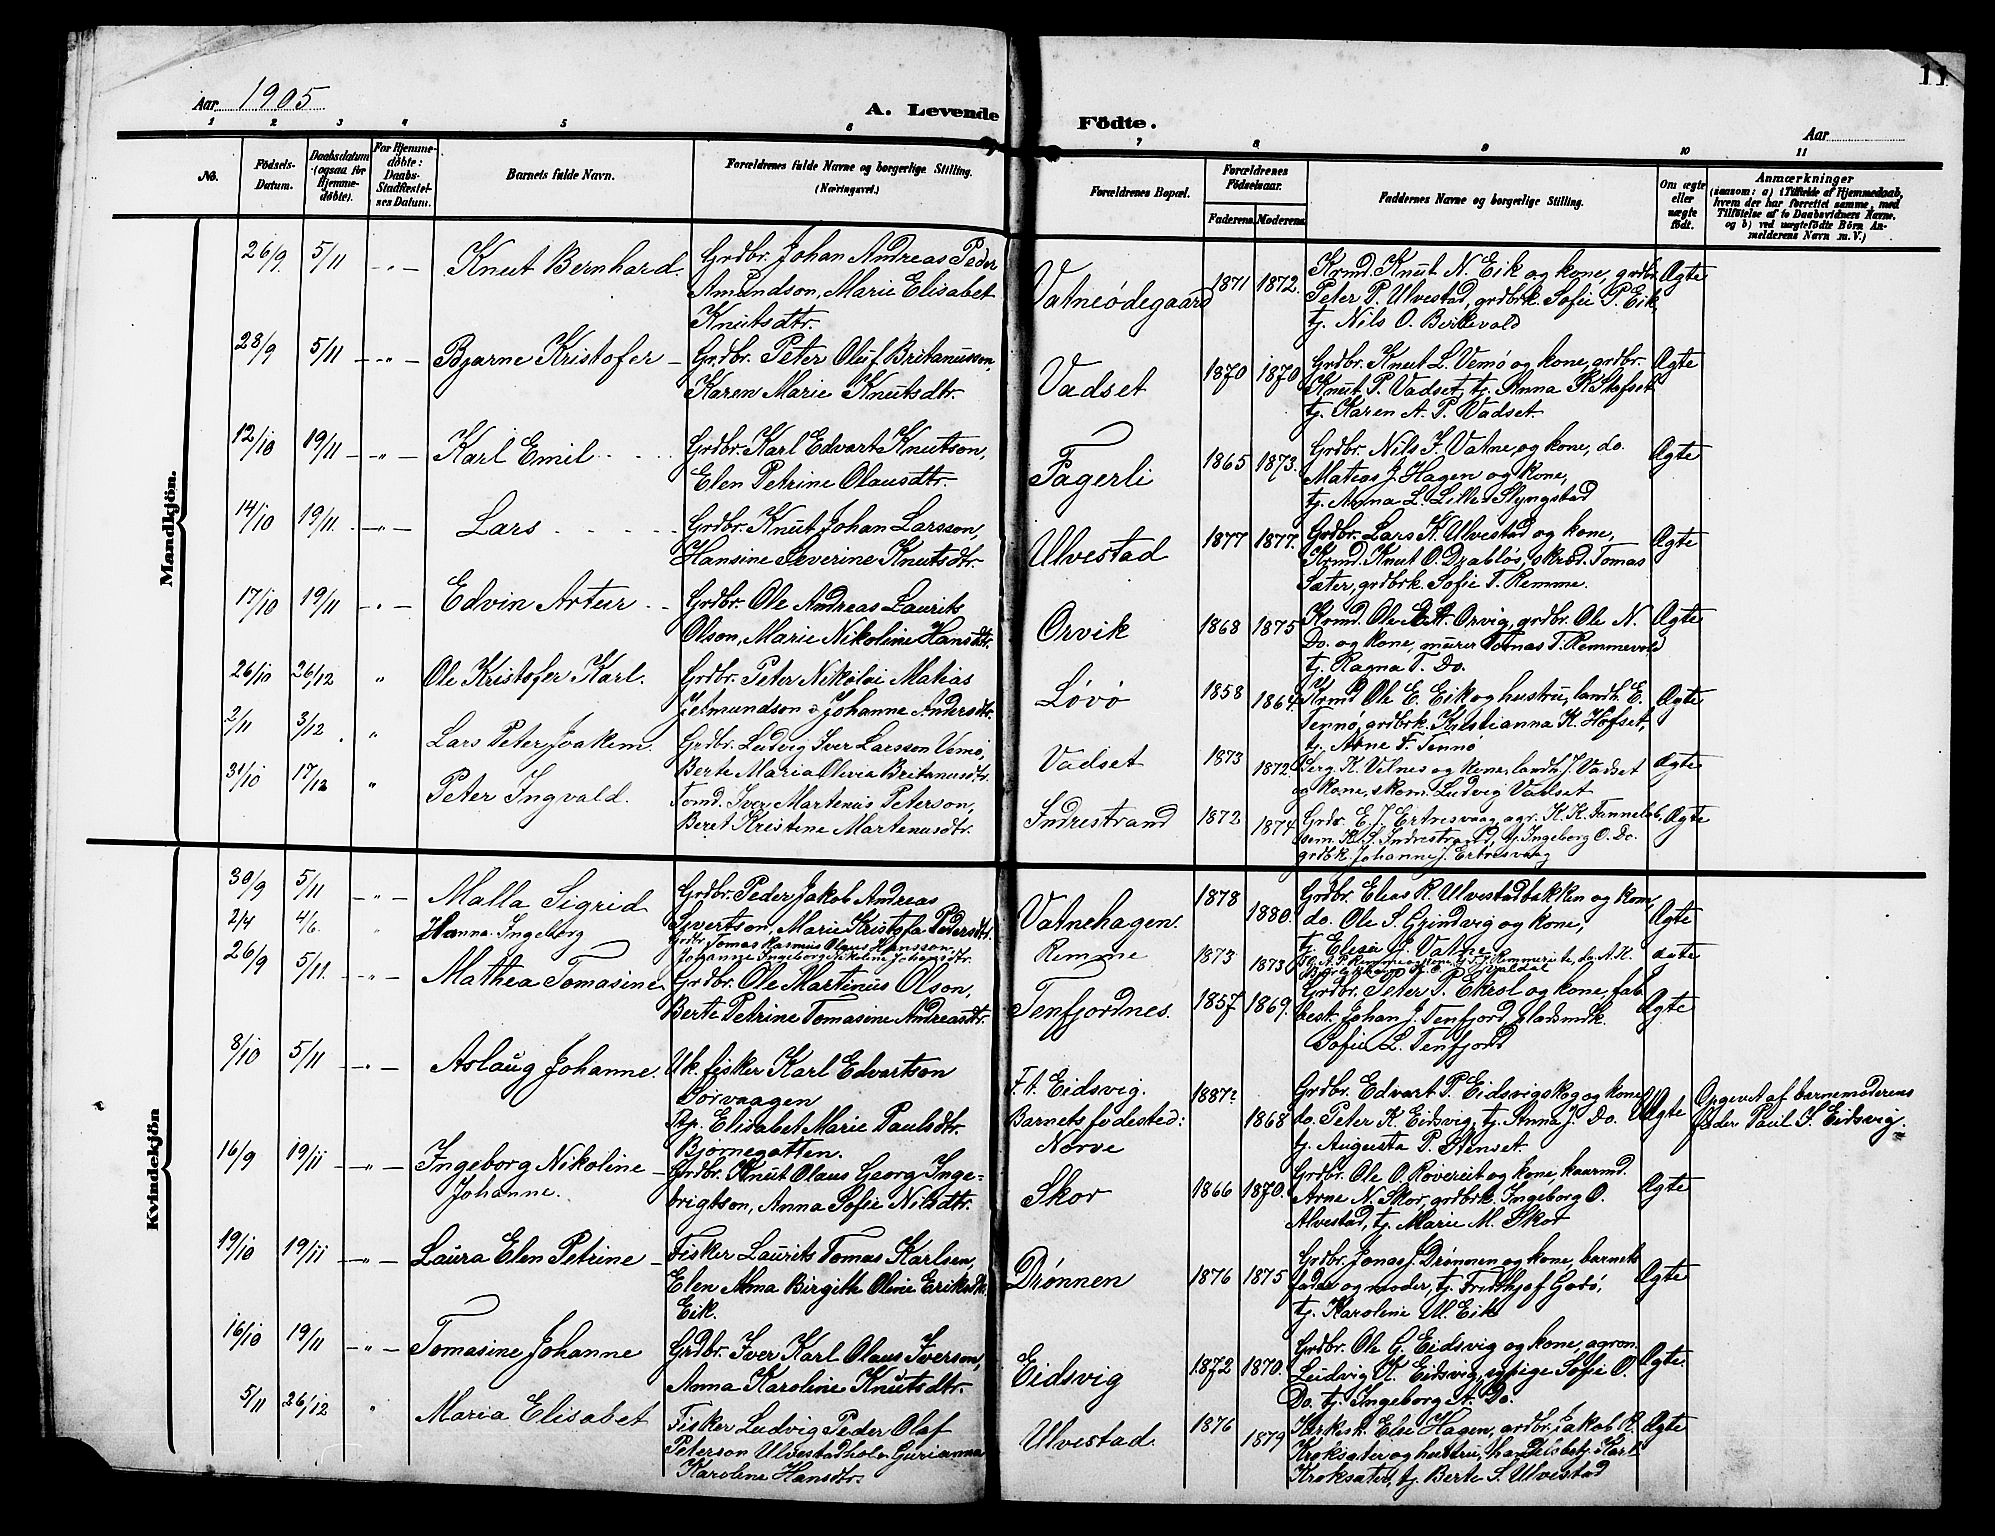 11
Aar 1905
A. Levende Födte.
Aar
1 2 3 4 5 6 7 8 9 10 11
No.
Födsels-Datum.
Daabsdatum (ogsaa for Hjemmedøbte).
For Hjemmedøbte: Daabs-Stadfæstelses Datum.
Barnets fulde Navn.
Forældrenes fulde Navne og borgerlige Stilling.
(Næringsvei.)
Forældrenes Bopæl.
Forældrenes Födselsaar.
Faderens. Moderens.
Faddernes Navne og borgerlige Stilling.
Om ægte eller uægte födt.
Anmærkninger
(saasom: a) i Tilfælde af Hjemmedaab, hvem der har forrettet samme, med Tilföielse af to Daabsvidners Navne, og b) ved uægtefödte Börn Anmelderens Navn m. V.)
Mandkjön.
26/9 5/11 - " - Knut Bernhard. Grdbr. Johan Andreas Peder
Amundson, Marie Elisabet
Knutsdtr.
Vatneødegaard 1871 1872.
Krmd. Knut N. Eik og kone, grdbr.
Peter P. Ulvestad, grdbrk. Sofie P. Eik,
tj. Nils O. Birkevold
Ægte
28/9 5/11 - " - Bjarne Kristofer - Grdbr. Peter Oluf Britanusson,
Karen Marie Knutsdtr.
Vadset 1870 1870
Grdbr. Knut L. Vemø og kone, grdbr.
Knut P. Vadset, tj. Anna K. Stafset
tj. Karen A. P. Vadset
Ægte
12/10 19/11 - " - Karl Emil Grdbr. Karl Edvart Knutson,
Elen Petrine Olausdtr.
Fagerli 1865 1873.
Grdbr. Nils J. Vatne, og kone, do.
Matias J. Hagen og kone,
tj. Anna L. Lille-Slyngstad
Ægte
14/10 19/11. - " - Lars Grdbr. Knut Johan Larsson,
Hansine Severine Knutsdtr.
Ulvestad 1877 1877.
Grdbr. Lars K. Ulvestad og kone,
Krmd. Knut O. Dzabløs, skrbd. Tomas
Sæter, grdbrk. Sofie T. Remme.
Ægte
17/10 19/11 - " - Edvin Artur Grdbr. Ole Andreas Laurits
Olson, Marie Nikoline Hansdtr.
Orvik 1868 1875
Krmd. Ole E. A. Orvig, grdbr. Ole N.
Do. og kone, murer Tomas T. Remmevold
tj. Ragna T. Do.
Ægte
26/10 26/12 " Ole Kristofer Karl. Grdbr. Peter Nikolai Matias
Jetmundson o Johanne Andersdtr.
Løvø 1858 1864.
Krmd Ole E. Eik og hustru, landh. E.
Tennø, grdbrk. Kristianna K. Hofset,
tj. Arne F. Tennø
Ægte
2/11 3/12. " Lars Peter Joakem. Grdbr. Ludvig Iver Larsson Vemø,
Berte Maria Olivia Britanusdtr.
Vadset 1873 1872
Serg. K. Velnes og kone, landh. J. Vadset
og kone, skom. Ludvig Vadset
Ægte
31/10 17/12 " Peter Ingvald. Tomd. Iver Martenus Peterson,
Beret Kristene Martenusdtr.
Indrestrand 1872 1874
Grdbr. E. J. Ertresvaag, agr. K. K. Tanneløb,
søm. K. S. Indrestrand, tj. Ingeborg O. Do.
grdbrk Johanne J. Ertresvaag
Ægte
Kvindekjön
30/9 5/11 - " - Malla Sigrid Grdbr. Peder Jakob Andreas
Syvertson, Marie Kristofa Pedersdtr.
Vatnehagen. 1878 1880.
Grdbr. Elias R. Ulvestadbakken og kone,
do. Ole S. Grindvig og kone,
tj. Elise E. Vatne
Ægte
2/4 4/6. " Hanna Ingeborg Grdbr. Tomas Rasmus Olaus Hansson.
Johanne Ingeborg Nikoline Johansdtr.
Remme 1873 1873
ægte
26/9 5/11. - " - Mathea Tomasine Grdbr. Ole Martinus Olson,
Berte Petrine Tomasine Andreasdtr.
Tenfjordnes. 1857 1869.
Grdbr. Peter P. Ekrol og kone, fab.
best. Johan J. Tenfjord, pladsmdk.
Sofie L. Tenfjord
Ægte
8/10 5/11 - " - Aslaug Johanne. Uk. fisker Karl Edvartson
Sorvaagen
Pp. Elisabet Marie Paulsdtr.
Bjørnegatten.
F. t. Eidsvig.
Barnets fødested:
Nørve
1887? 1868
Grdbr. Edvart P. Eidsvigskog og kone,
do. Peter K. Eidsvig, tj. Anna J. Do.
tj. Augusta P. Stenset.
Uægte
Opgivet af barnemoderens
fader Paul S. Eidsvig.
16/9 19/11 - " - Ingeborg Nikoline
Johanne.
Grdbr. Knut Olaus Georg Inge-
brigtson, Anna Sofie Nilsdtr.
Skor 1866 1870.
Grdbr. Ole O. Røvereit og kone, kaarmd.
Arne N. Skor, grdbrk. Ingeborg O.
Alvestad, tj. Marie M. Skor
Ægte
19/10 19/11 - " - Laura Elen Petrine - Fisker Laurits Tomas Karlsen,
Elen Anna Birgith Oline Eriksdtr.
Eik.
Drønnen 1876 1875
Grdbr. Jonas J. Drønnen og kone, barnets
fader og moder, tj. Fritthjof Godø,
tj. Karoline M. Eik
Ægte
16/10 19/11 - " - Tomasine Johanne Grdbr. Iver Karl Olaus Iverson,
Anna Karoline Knutsdtr.
Eidsvig 1872 1870.
Grdbr. Ole G. Eidsvig og kone, agron.
Ludvig K. Eidsvig, sypige Sofie O.
Do. tj. Ingeborg A. Do.
Ægte
5/11 26/12 " Maria Elisabet Fisker Ludvig Peder Olaf
Peterson Ulvestadholm Gurianna
Karoline Hansdtr.
Ulvestad. 1876 1879
Kirkesk. Else Hagen, grdbr. Jakob R.
Kroksæter og hustru, handelsbetj. Karl
Kroksæter, tj. Berte S. Ulvestad
Ægte